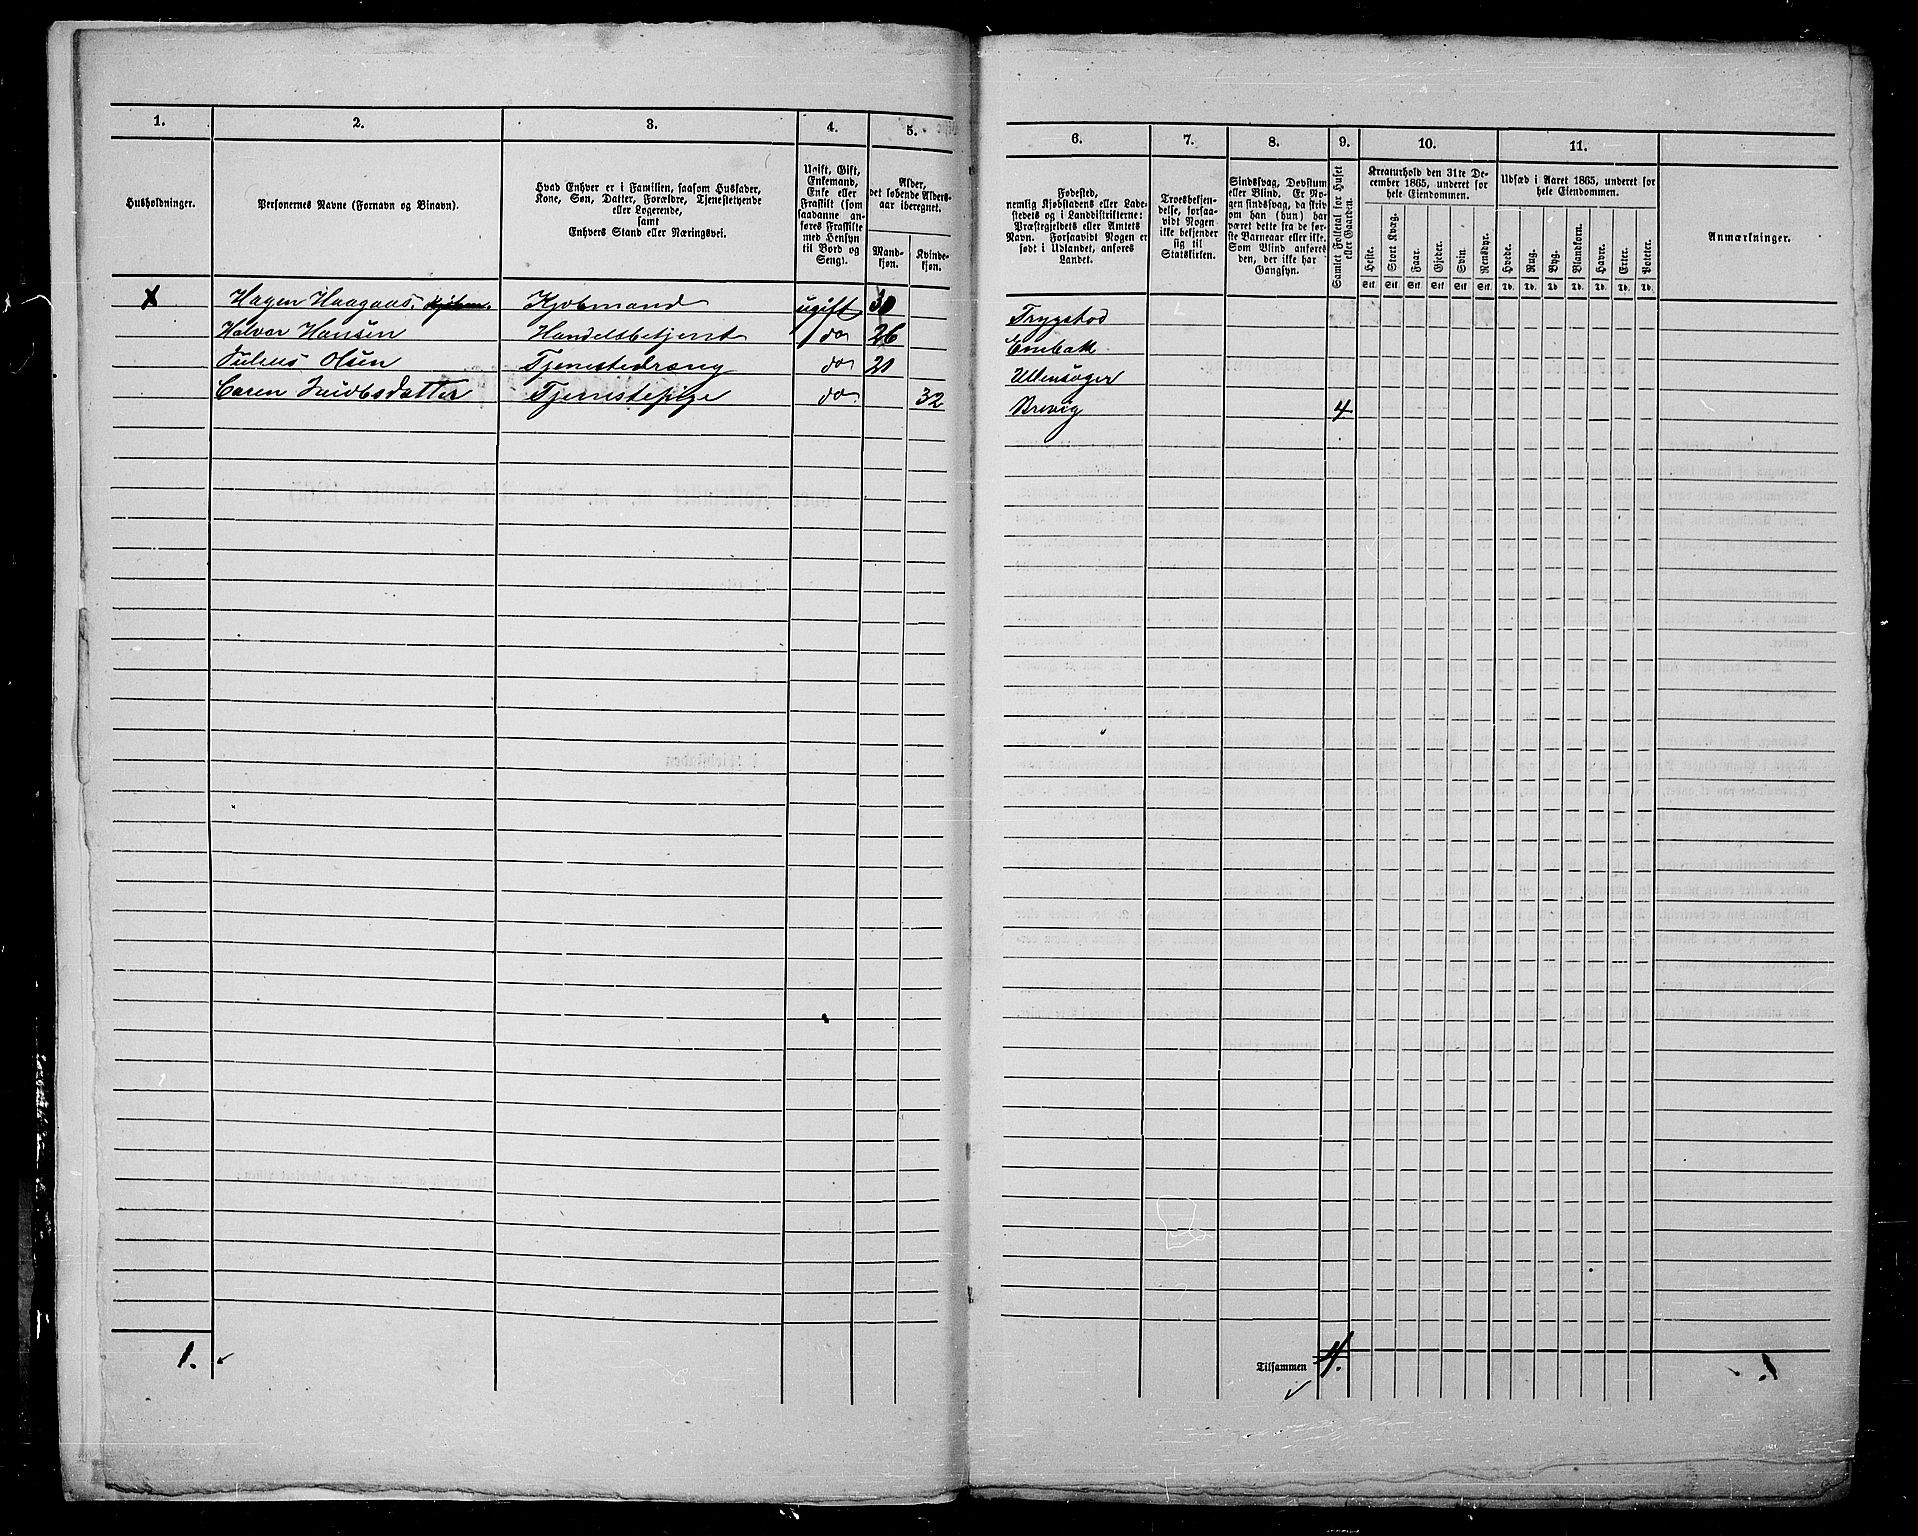 1. 2. 3. 4. 5. 6. 7. 8. 9. 10. 11.
Husholdninger.
Personernes Navne (Fornavn og Binavn).
Hvad Enhver er i Familien, saasom Husfader,
Kone, Søn, Datter, Forældre, Tjenestetyende
eller Logerende,
samt
Enhvers Stand eller Næringsvei.
Ugift, Gift,
Enkemand,
Enke eller
Fraskilt (som
saadanne an-
føres Fraskilte
med Hensyn
til Bord og
Seng).
Alder,
det løbende Alders-
aar iberegnet.
Mand-
kjøn.
Kvinde-
kjøn.
Fødested,
nemlig Kjøbstadens eller Lade-
stedets og i Landdistrikterne:
Præstegjeldets eller Amtets
Navn. Forsaavidt Nogen er
født i Udlandet, anføres
Landet.
Troesbekjen-
delse, forsaa-
vidt Nogen
ikke bekjender
sig til
Statskirken.
Sindssvag, Døvstum
eller Blind. Er No-
gen sindssvag, da skriv
om han (hun) har
været dette fra de før-
ste Barneaar eller ikke.
Som Blind anføres
den, der ikke har
Gangsyn.
Samlet Folketal for Huset
eller Gaarden.
Kreaturhold den 31te De-
cember 1865, underet for
hele Eiendommen.
Heste. Stort Kvæg. Faar. Gjeder. Svin. Rensdyr.
Stk. Stk. Stk. Stk. Stk. Stk.
Udsæd i Aaret 1865, underet for
hele Eiendommen.
Hvede. Rug. Byg. Blandkorn. Havre. Erter. Poteter.
Td. Td. Td. Td. Td. Td. Td.
Anmærkninger.
X Hagen Haagaas Kjøbmand ugift 30 Trygstad
Halvor Hansen Handelsbetjent do 26
Julius Olsen Tjenestedræng do 21 Ullensøger
Caren Jacobsdatter Tjenestepige do 32 Brevig 4
1. Tilsammen 4. 1.